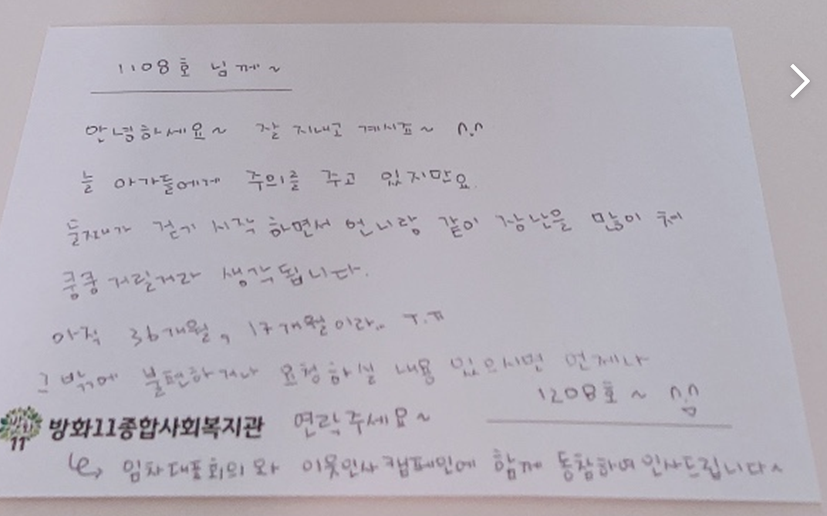 1108호 님께~
안녕하세요~ 잘 지내고 계시죠~ ^.^
늘 아가들에게 주의를 주고 있지만요.
둘째가 걷기 시작 하면서 언니랑 같이 장난을 많이 쳐
쿵쿵거릴거라 생각됩니다.
아직 36개월, 17개월이라.. T.T
그 밖에 불편하거나 요청하실 내용 있으시면 언제나
연락주세요~
1208호~ ^.^
방화11종합사회복지관
방화
11
↳ 임차대표회의와 이웃인사캠페인에 함께 동참하여 인사드립니다~